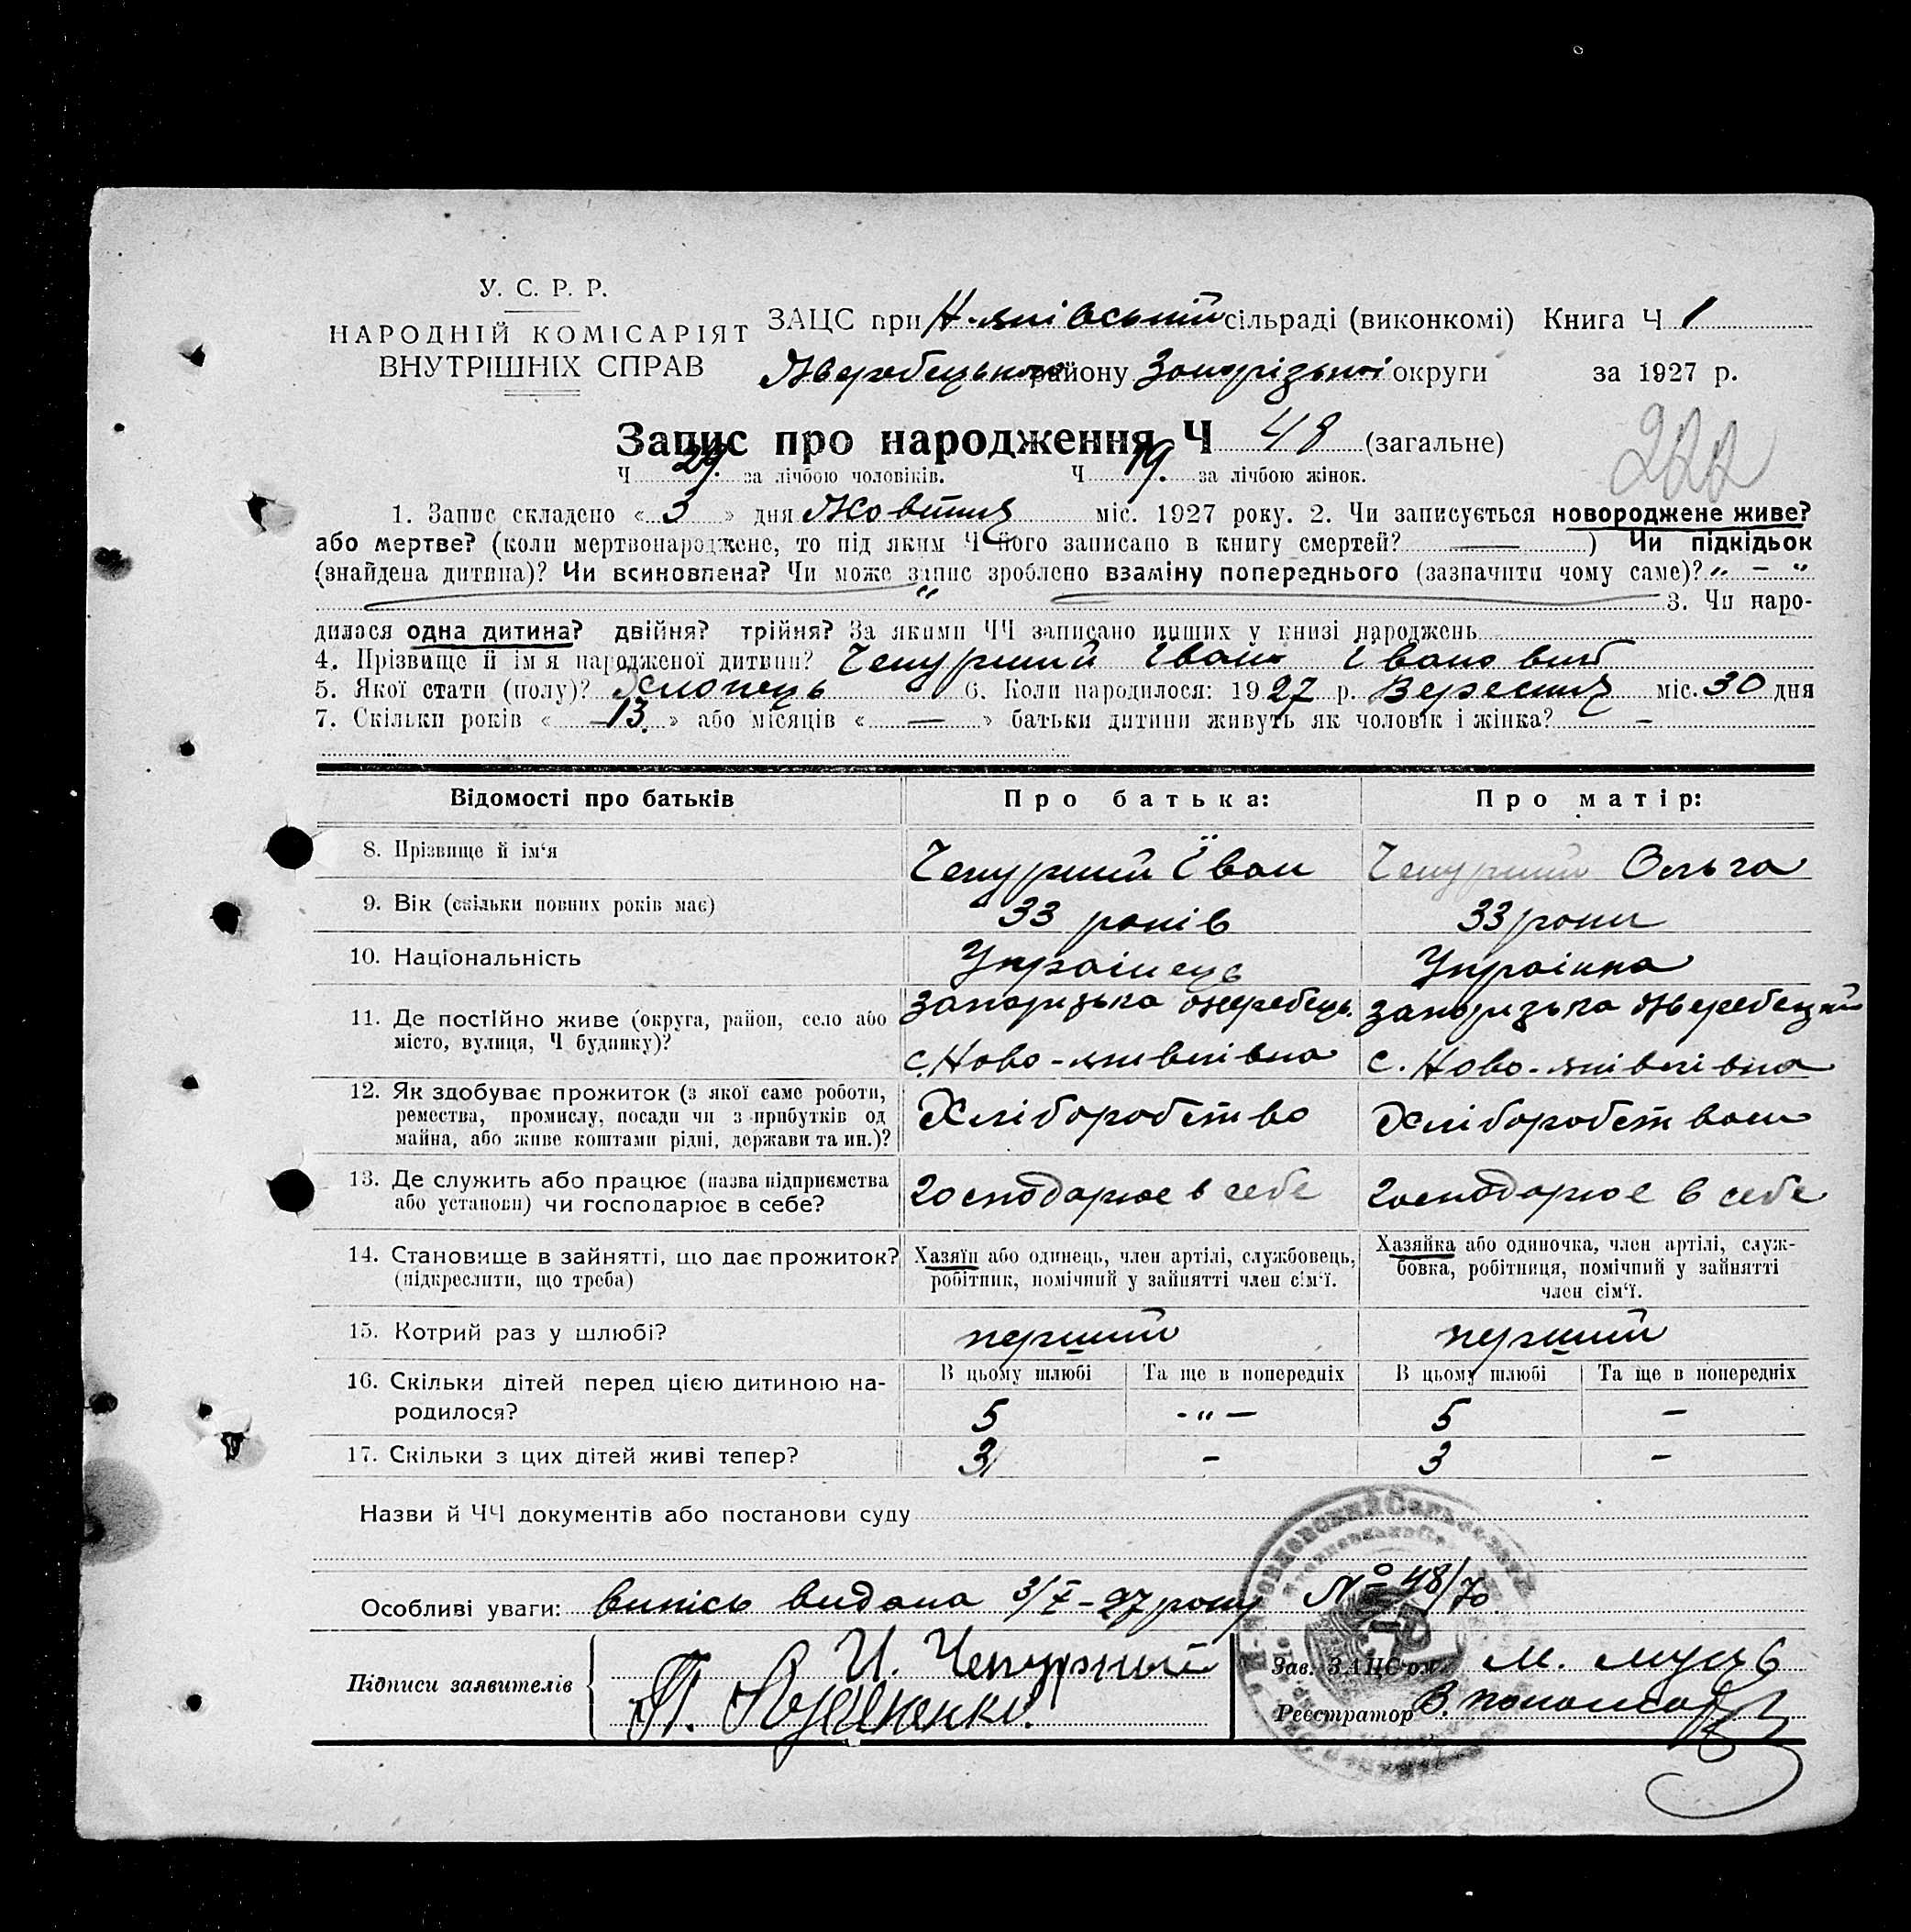 У. С. Р. Р.
НАРОДНІЙ КОМІСАРІЯТ
ВНУТРІШНІХ СПРАВ
ЗАЦС при сільраді (виконкомі) Книга Ч 1
району Запорізької округи за 1927 р.
Запис про народження Ч 48 (загальне)
222
Ч 29. за лічбою чоловіків. Ч 19. за лічбою жінок.
1. Запис складено « 3 » дня Жовтня міс. 1927 року. 2. Чи записується новороджене живе?
або мертве? (коли мертвонароджене, то під яким Ч його записано в книгу смертей? —) Чи підкідьок
(знайдена дитина)? Чи всиновлена? Чи може запис зроблено взаміну попереднього (зазначити чому саме)? „ – “
“ 3. Чи наро-
дилася одна дитина? двійня? трійня? За якими ЧЧ записано инших у книзі народжень
4. Прізвище й ім'я народженої дитини? Чепурний Іван Іванович
5. Якої стати (полу)? Хлопець 6. Коли народилося: 1927 р. Вересня міс. 30 дня
7. Скільки років « 13. » або місяців « — » батьки дитини живуть як чоловік і жінка? –
Відомості про батьків Про батька: Про матір:
8. Прізвище й ім'я Чепурний Їван Чепурний Ольга
9. Вік (скільки повних років має) 33 років 33 роки
10. Національність Українець Українка
11. Де постійно живе (округа, район, село або
місто, вулиця, Ч будинку)?
запоризька жеребець. запоризька жеребецький
с. Ново-яківлівка с. Ново-яківлівка
12. Як здобуває прожиток (з якої саме роботи,
ремества, промислу, посади чи з прибутків од
майна, або живе коштами рідні, держави та ин.)?
Хліборобство Хліборобством
13. Де служить або працює (назва підприємства
або установи) чи господарює в себе?
господарює в себе господарює в себе
14. Становище в зайнятті, що дає прожиток?
(підкреслити, що треба)
Хазяїн або одинець, член артілі, службовець,
робітник, помічний у зайнятті член сім'ї.
Хазяйка або одиночка, член артілі, служ-
бовка, робітниця, помічний у зайнятті
член сім'ї.
15. Котрий раз у шлюбі? перший перший
16. Скільки дітей перед цією дитиною на-
родилося?
В цьому шлюбі Та ще в попередніх В цьому шлюбі Та ще в попередніх
5 -“– 5 –
17. Скільки з цих дітей живі тепер? 3 – 3 –
Назви й ЧЧ документів або постанови суду
Особливі уваги: випись видана 3/X-27 року № 48/70
Підписи заявителів
И. Чепурний
Зав. ЗАЦС'ом М.
Реєстратор В.